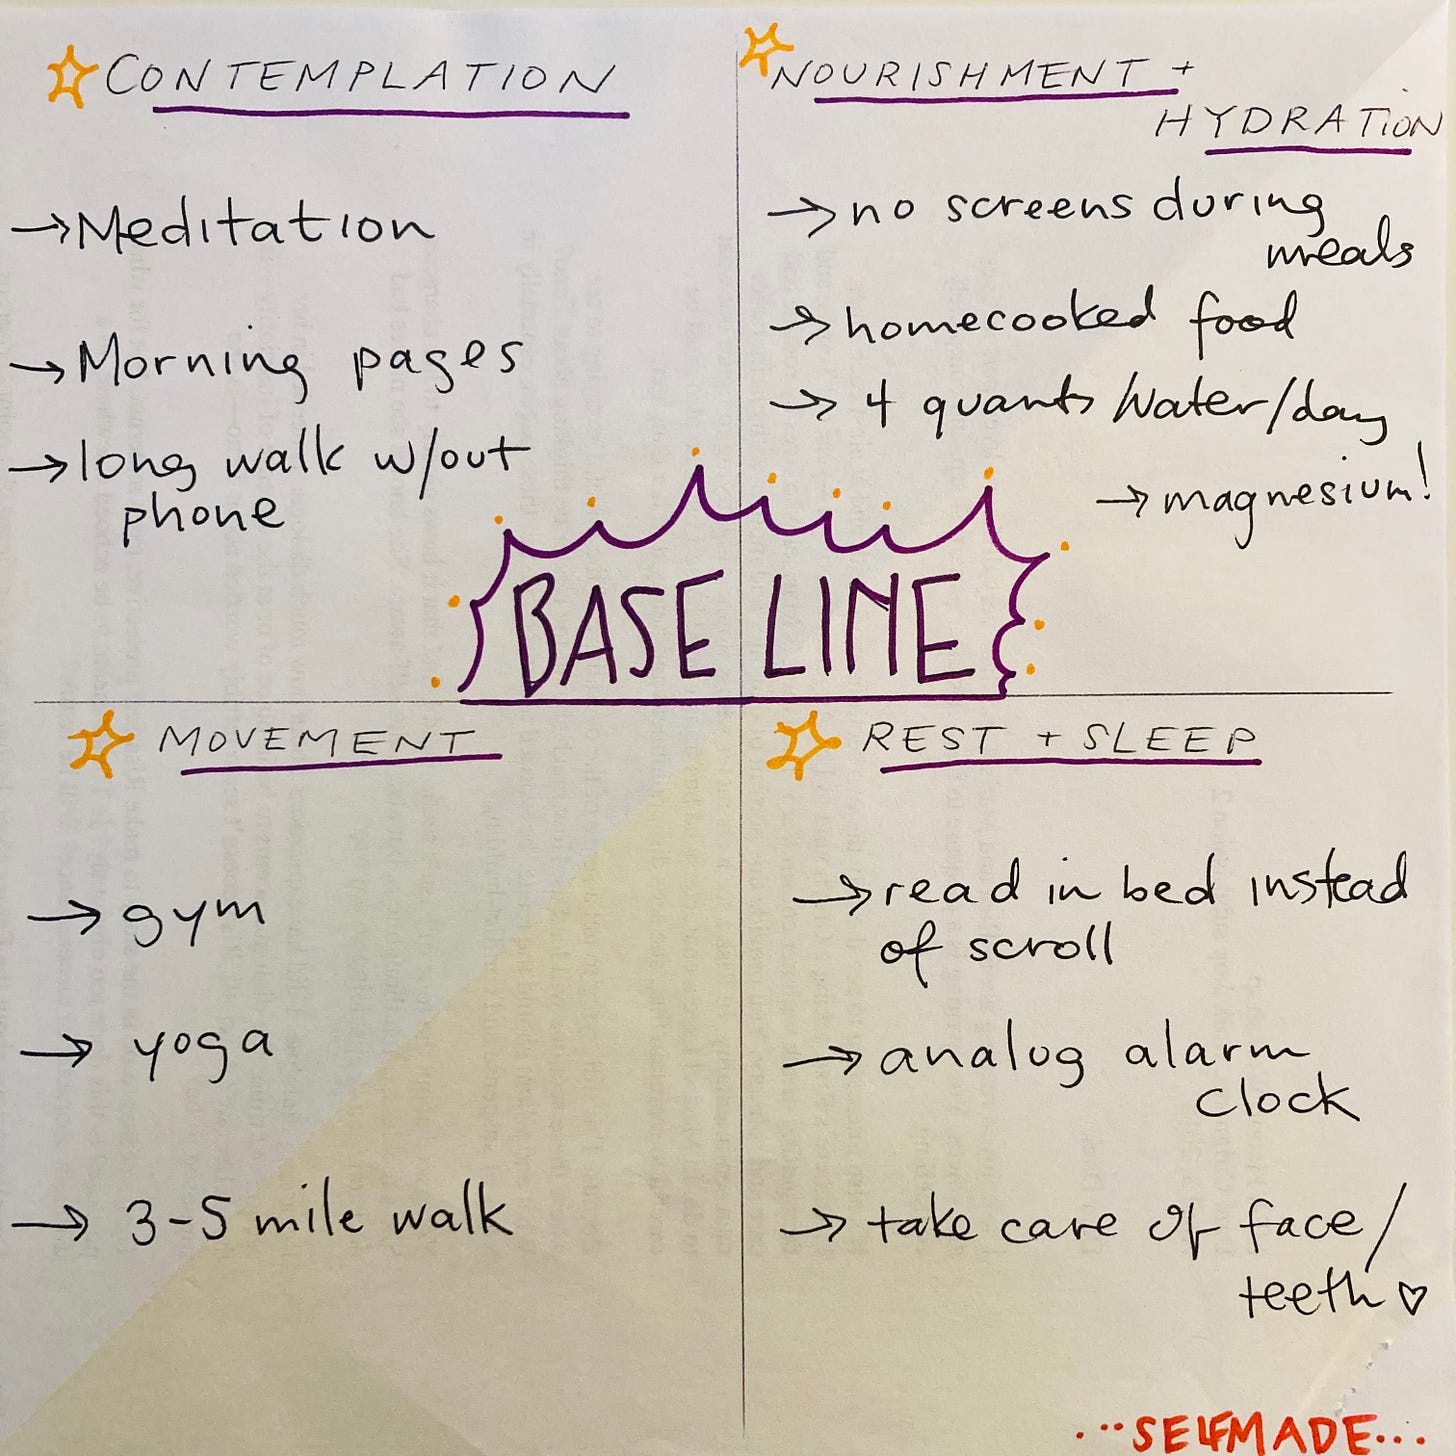 CONTEMPLATION
→Meditation
→Morning pages
→long walk w/out
phone
NOURISHMENT +
HYDRATION
→no screens during
meals
→homecooked food
→ 4 quants Water/day
→magnesium!
BASE LINE
MOVEMENT
→ gym
→ yoga
→ 3-5 mile walk
REST + SLEEP
→read in bed instead
of scroll
→analog alarm
clock
→take care of face/
teeth ♡
...SELFMADE...